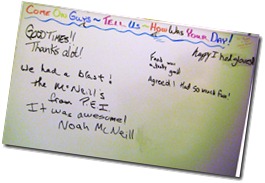 Come On Guys ~ Tell Us ~ How Was Your Day!
GOOD TIMES!!
Thanks alot!
We had a blast!
the McNeill's
from P.E.I.
It was awesome!
Noah McNeill
Happy I had gloves!
Food was
Agreed I Had So much Fun!